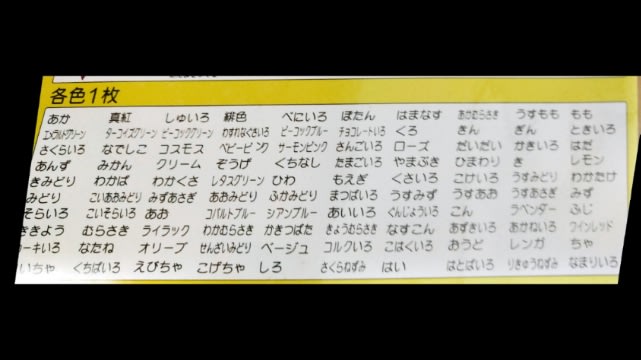 各色1枚
あか 真紅 しゅいろ 緋色 べにいろ ぼたん はまなす あかむらさき うすもも もも
エメラルドグリーン ターコイズグリーン ピーコックグリーン わすれなぐさいろ ピーコックブルー チョコレートいろ くろ きん ぎん ときいろ
さくらいろ なでしこ コスモス ベビーピンク サーモンピンク さんごいろ ローズ だいだい かきいろ はだ
あんず みかん クリーム ぞうげ くちなし たまごいろ やまぶき ひまわり き レモン
きみどり わかば わかくさ レタスグリーン ひわ もえぎ くさいろ こけいろ うすみどり わかたけ
みどり こいあおみどり みずあさぎ あおみどり ふかみどり まつばいろ うすみず うすあお うすあさぎ みず
そらいろ こいそらいろ あお コバルトブルー シアンブルー あいいろ ぐんじょういろ こん ラベンダー ふじ
ききょう むらさき ライラック わかむらさき かきつばた きょうむらさき なすこん あずきいろ あかねいろ ワインレッド
ーキいろ なたね オリーブ せんざいみどり ベージュ コルクいろ こはくいろ おうど レンガ ちゃ
いちゃ くちばいろ えびちゃ こげちゃ しろ さくらねずみ はい はとばいろ りきゅうねずみ なまりいろ